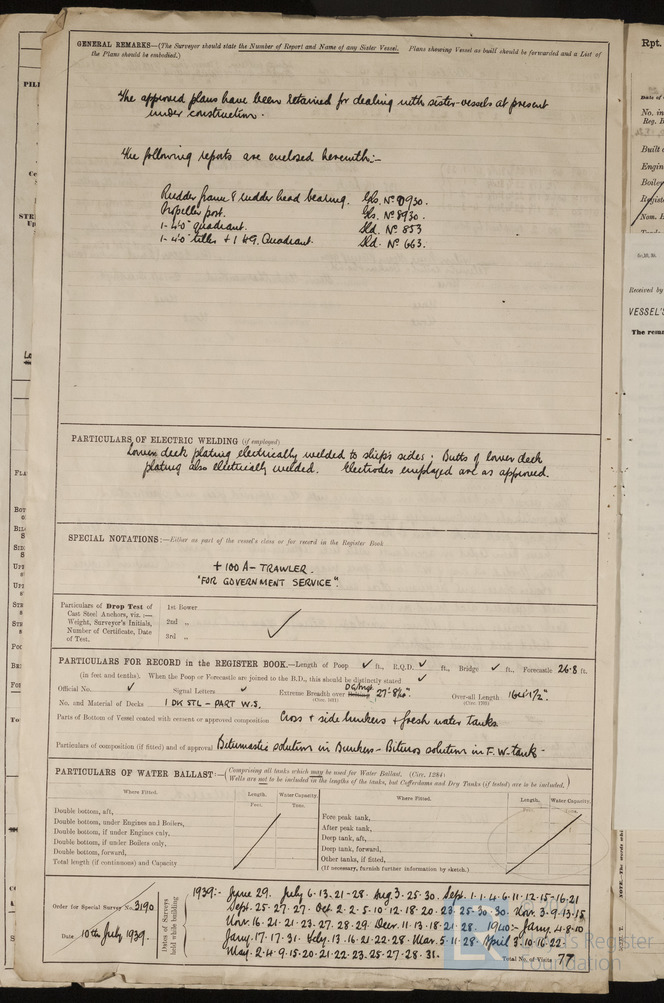 GENERAL REMARKS—(The Surveyor should state the Number of Report and Name of any Sister Vessel. Plans showing Vessel as built should be forwarded and a List of
the Plans should be embodied.)
The approved plans have been retained for dealing with sister-vessels at present
under construction.
The following reports are enclosed herewith:-
Rudder frame & rudder head bearing. Gls. No 8930.
Propeller post. Gls. No 8930.
1-4'0" quadrant. Sld. No 853
1-4'0" tiller + 1 Quadrant. Sld. No 663.
PARTICULARS OF ELECTRIC WELDING (if employed)
Lower deck plating electrically welded to ship's sides: Butts of lower deck
plating also electrically welded. Electrodes employed are as approved.
SPECIAL NOTATIONS:—Either as part of the vessel's class or for record in the Register Book
+ 100 A – TRAWLER.
"FOR GOVERNMENT SERVICE".
Particulars of Drop Test of
Cast Steel Anchors, viz.:—
Weight, Surveyor's Initials,
Number of Certificate, Date
of Test.
1st Bower
2nd „
3rd „
PARTICULARS FOR RECORD in the REGISTER BOOK.—Length of Poop ✓ ft., R.Q.D. ✓ ft., Bridge ✓ ft., Forecastle 26.8 ft.
(in feet and tenths). When the Poop or Forecastle are joined to the B.D., this should be distinctly stated ✓
Official No. ✓ Signal Letters ✓ Extreme Breadth over 27'-8½". Over-all Length 164'-1½".
(Circ. 1611) (Circ. 1703)
No. and Material of Decks 1 DK STL – PART W.S.
Parts of Bottom of Vessel coated with cement or approved composition Cross + side bunkers + fresh water tanks
Particulars of composition (if fitted) and of approval Bitumastic solution in Bunkers – Bituros solution in F.W. tank -
PARTICULARS OF WATER BALLAST:—(Comprising all tanks which may be used for Water Ballast. (Circ. 1284)
Wells are not to be included in the lengths of the tanks, but Cofferdams and Dry Tanks (if tested) are to be included.)
Where Fitted. Length. Water Capacity. Where Fitted. Length. Water Capacity.
Feet. Tons.
Double bottom, aft,
Double bottom, under Engines and Boilers,
Double bottom, if under Engines only,
Double bottom, if under Boilers only,
Double bottom, forward,
Total length (if continuous) and Capacity
Fore peak tank,
After peak tank,
Deep tank, aft,
Deep tank, forward,
Other tanks, if fitted,
(If necessary, furnish further information by sketch.)
Order for Special Survey No. 3190
Date 10th July 1939.
Dates of Surveys
held while building
1939:- June 29. July 6.13.21-28. Aug 3.25.30. Sept. 1.1.4.6.11.12.15-16.21
Sept. 25.27.27. Oct. 2.2.5.10.12.18.20.23.25.30.30. Nov. 3.9.13.15
Nov. 16.21.21.23.27.28.29. Decr. 11.13.18.21.28. 1940:- Jany. 4.8.10
Jany. 17.17.31. Feby. 13.16.21.22.28. Mar. 5.11.28. April 3.10.16.22.
May. 2.4.9.15.20.21.22.23.25.27.28.31.
Total No. of Visits 77
Lloyd's Register
Foundation
Rpt.
Received by
VESSEL'S